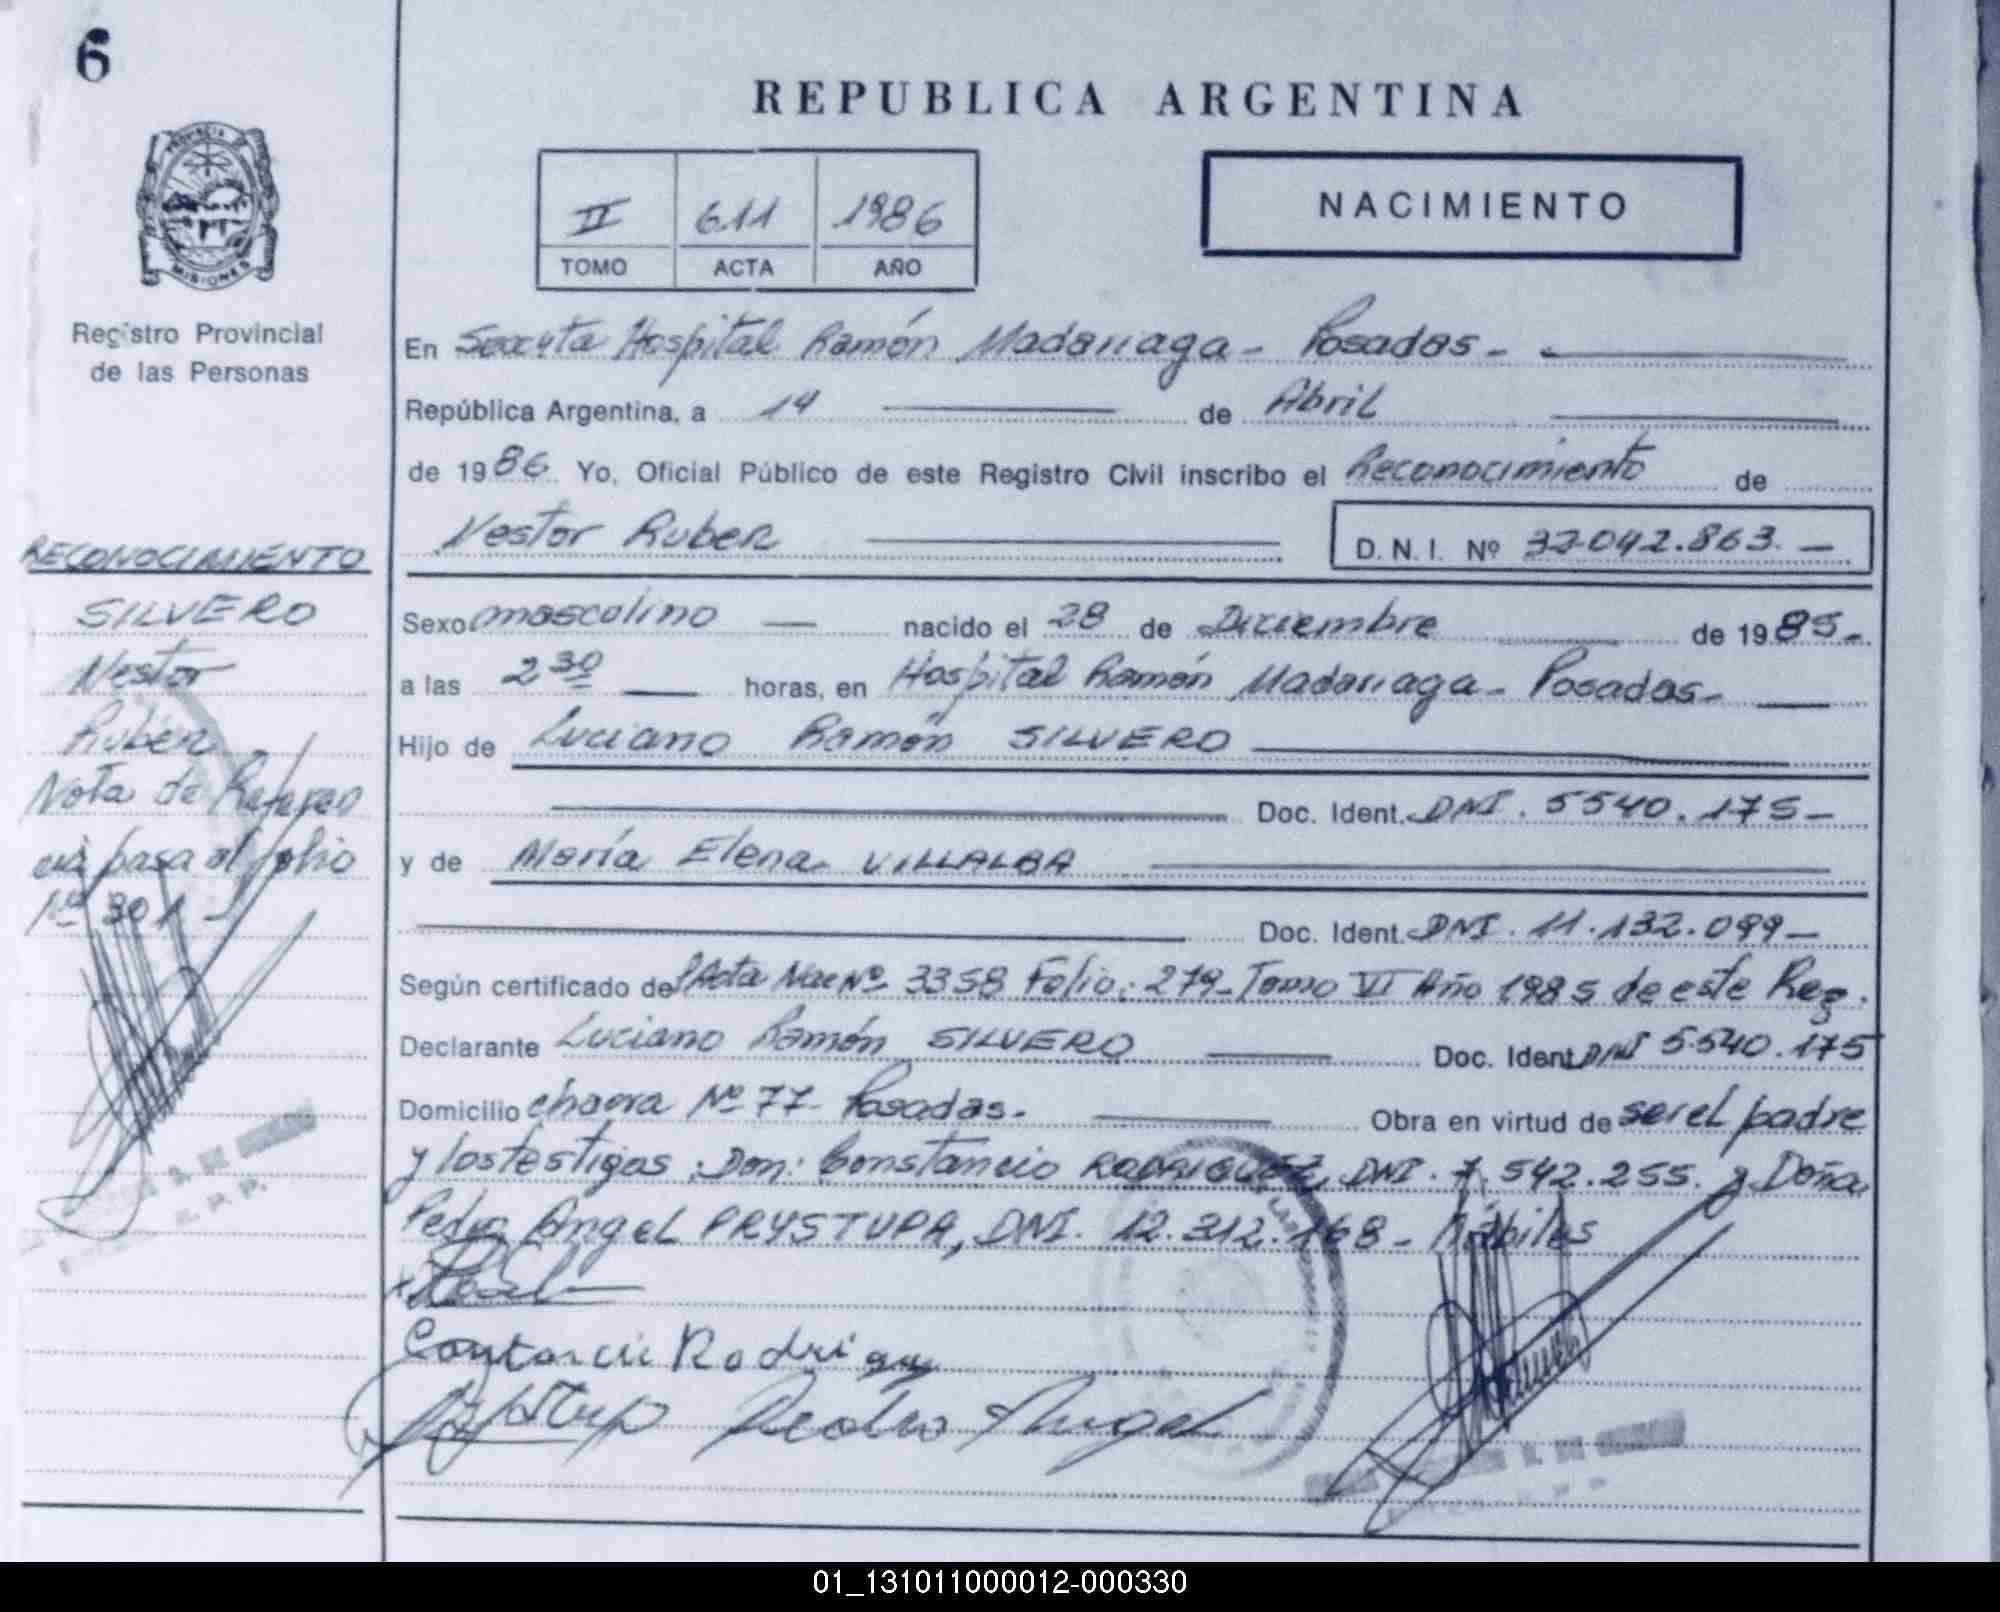 6
REPUBLICA ARGENTINA
PROVINCIA
MISIONES
Registro Provincial
de las Personas
II 611 1986
TOMO ACTA AÑO
NACIMIENTO
En Seccyta Hospital Ramón Madariaga - Posadas -
República Argentina, a 14 de Abril
de 1986 Yo, Oficial Público de este Registro Civil inscribo el Reconocimiento de
Nestor Ruben D. N. I. Nº 32.042.863. -
RECONOCIMIENTO
SILVERO
Nestor
Rubén
Nota de Referen
cia pasa al folio
Nº 301 -
Sexo masculino nacido el 28 de Diciembre de 1985.-
a las 2 30 horas, en Hospital Ramón Madariaga - Posadas -
Hijo de Luciano Ramón SILVERO
Doc. Ident. DNI. 5540.175-
y de María Elena VILLALBA
Doc. Ident. DNI. 11.132.099-
Según certificado de Acta Nac Nº 3358 Folio: 279- Tomo VI Año 1985 de este Reg.
Declarante Luciano Ramón SILVERO Doc. Ident. DNI 5.540.175
Domicilio chacra Nº 77- Posadas. Obra en virtud de ser el padre
y los testigos: Don: Constancio RODRIGUEZ, DNI. 7.542.255. y Doña
Pedro Angel PRYSTUPA, DNI. 12.312.168 - Hábiles
Contancii Rodrigu
Prystup Pedro Angel
01_131011000012-000330